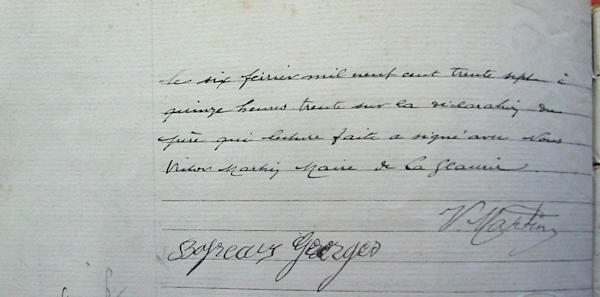 le six février mil neuf cent trente sept à
quinze heures trente sur la déclaration du
père qui lecture faite a signé avec Nous
Victor Martin Maire de La
V. Martin
Georges